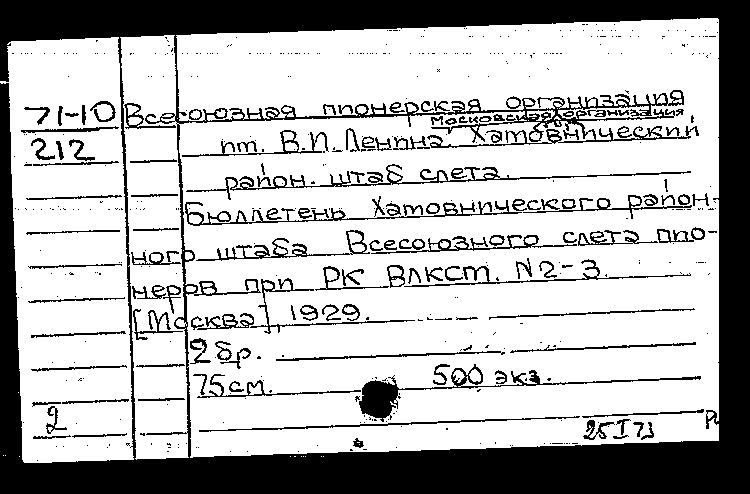 71-10 Всесоюзная пионерская организация
Московская гор. организация
212 им. В.И. Ленина. Хамовнический
район. штаб слета.
Бюллетень Хамовнического район-
ного штаба Всесоюзного слета пио-
неров при РК ВЛКСМ. N2-3.
[Москва], 1929.
2 бр.
75см. 500 экз.
2
25 I 73